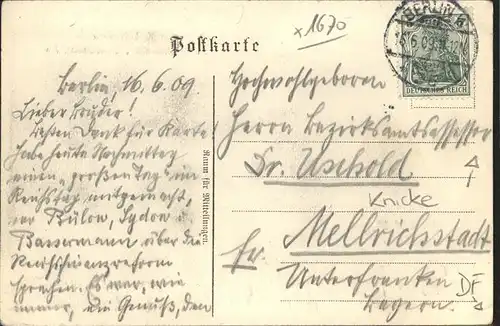 x 1670
Postkarte
BERLIN
16.6.09
DEUTSCHES REICH
Berlin, 16.6.09
Lieber Bruder!
Besten Dank für Karte!
Habe heute Nachmittag
einen „großen Tag" im
Reichstag mitgemacht,
wo Bülow, Sydow u.
Bassermann über die
Reichsfinanzreform
sprachen. Es war, wie
immer, ein Genuß, den
Raum für Mitteilungen.
Hochwohlgeboren
Herrn Bezirksamtsassessor
Dr. Uschold
Knicke
Mellrichstadt
Unterfranken
Bayern.
DF